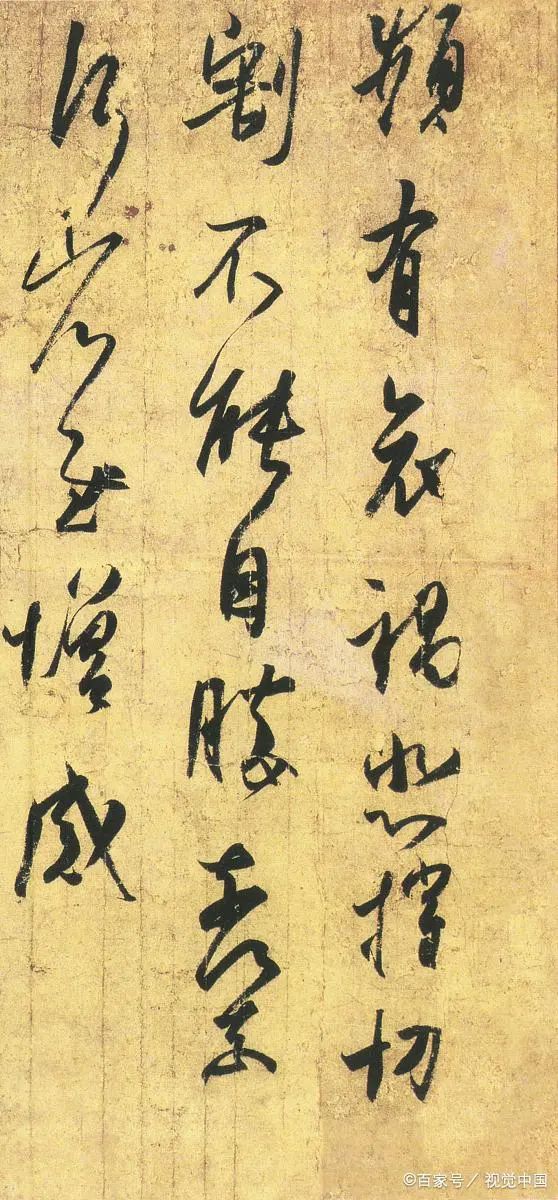 頻有哀禍悲摧切
割不能自勝奈何
奈何省慰增感
©百家号／视觉中国